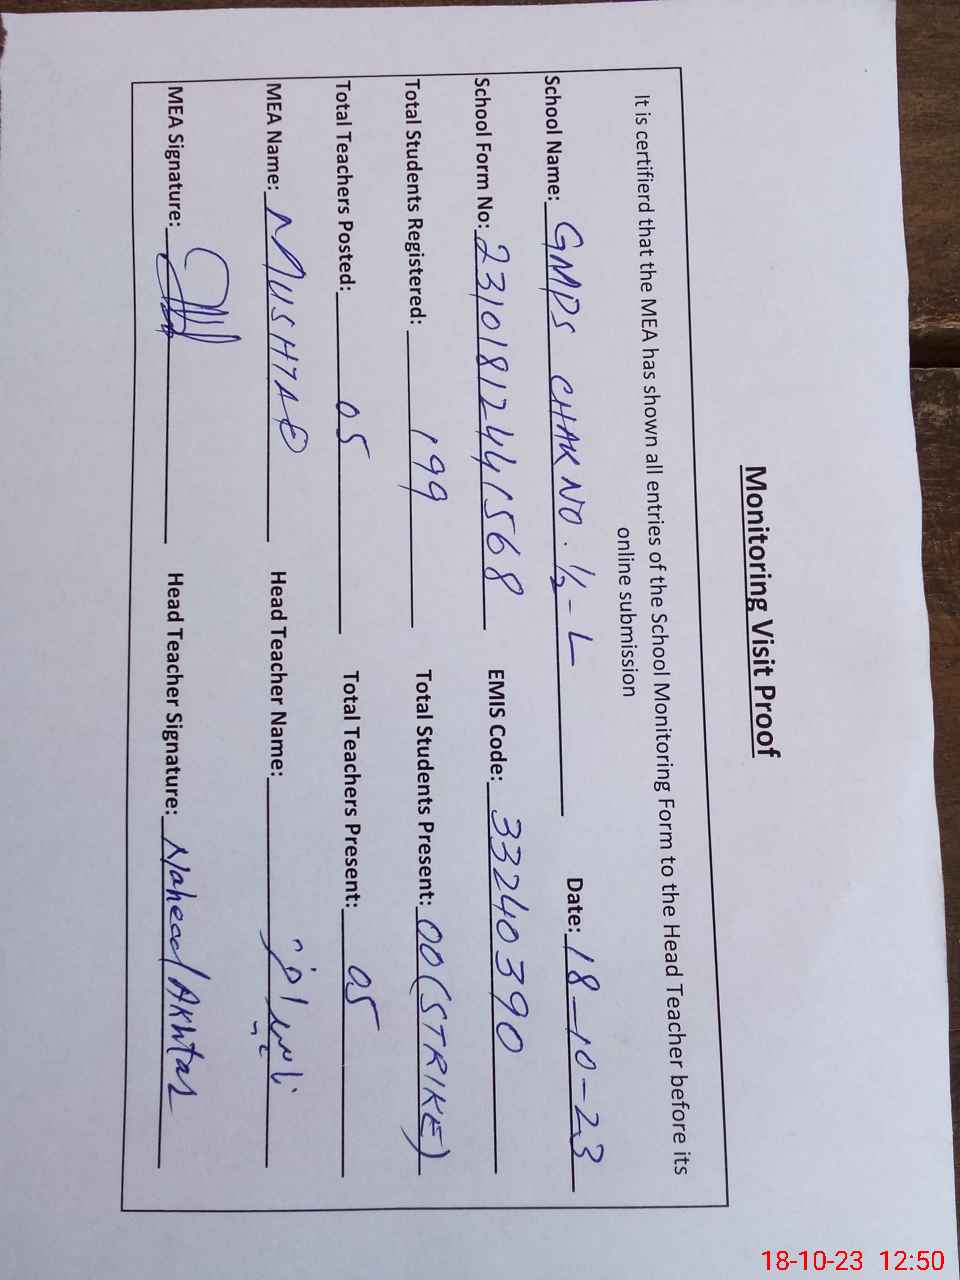 Monitoring Visit Proof
It is certifierd that the MEA has shown all entries of the School Monitoring Form to the Head Teacher before its
online submission
School Name: GMPS CHAK NO. 1/2-L Date: 18-10-23
School Form No: 23101812441568 EMIS Code: 33240390
Total Students Registered: 199 Total Students Present: 00 (STRIKE)
Total Teachers Posted: 05 Total Teachers Present: 05
MEA Name: MUSHTAQ Head Teacher Name: ناہید اختر
MEA Signature: Head Teacher Signature: Naheed Akhtar
18-10-23 12:50